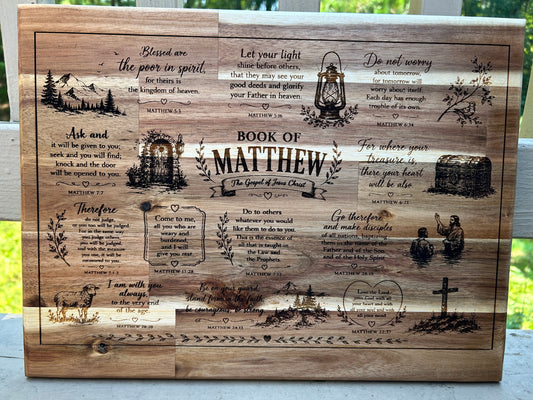 Blessed are
the poor in spirit,
for theirs is
the kingdom of heaven.
MATTHEW 5:3
Let your light
shine before others,
that they may see your
good deeds and glorify
your Father in heaven.
MATTHEW 5:16
Do not worry
about tomorrow,
for tomorrow will
worry about itself.
Each day has enough
trouble of its own.
MATTHEW 6:34
Ask and
it will be given to you;
seek and you will find;
knock and the door
will be opened to you.
MATTHEW 7:7
BOOK OF
MATTHEW
The Gospel of Jesus Christ
For where your
treasure is,
there your heart
will be also.
MATTHEW 6:21
Therefore
do not judge
or you too will be judged.
you judge others,
you will be judged,
and with the measure
you use, it will be
measured to you.
MATTHEW 7:1-2
Come to me,
all you who are
weary and
burdened,
and I will
give you rest
MATTHEW 11:28
Do to others
whatever you would
like them to do to you.
This is the essence of
all that is taught in
the Law and
the Prophets.
MATTHEW 7:12
Go therefore
and make disciples
of all nations,
them in the name of the
Father and of the Son
and of the Holy Spirit
MATTHEW 28:19
I am with you
always,
to the very end
of the age.
MATTHEW 28:20
Be on your guard;
stand firm in the faith
be courageous; be strong
MATTHEW
Love the Lord
God with all
your heart and with
all your soul and with
all your mind
MATTHEW 22:37